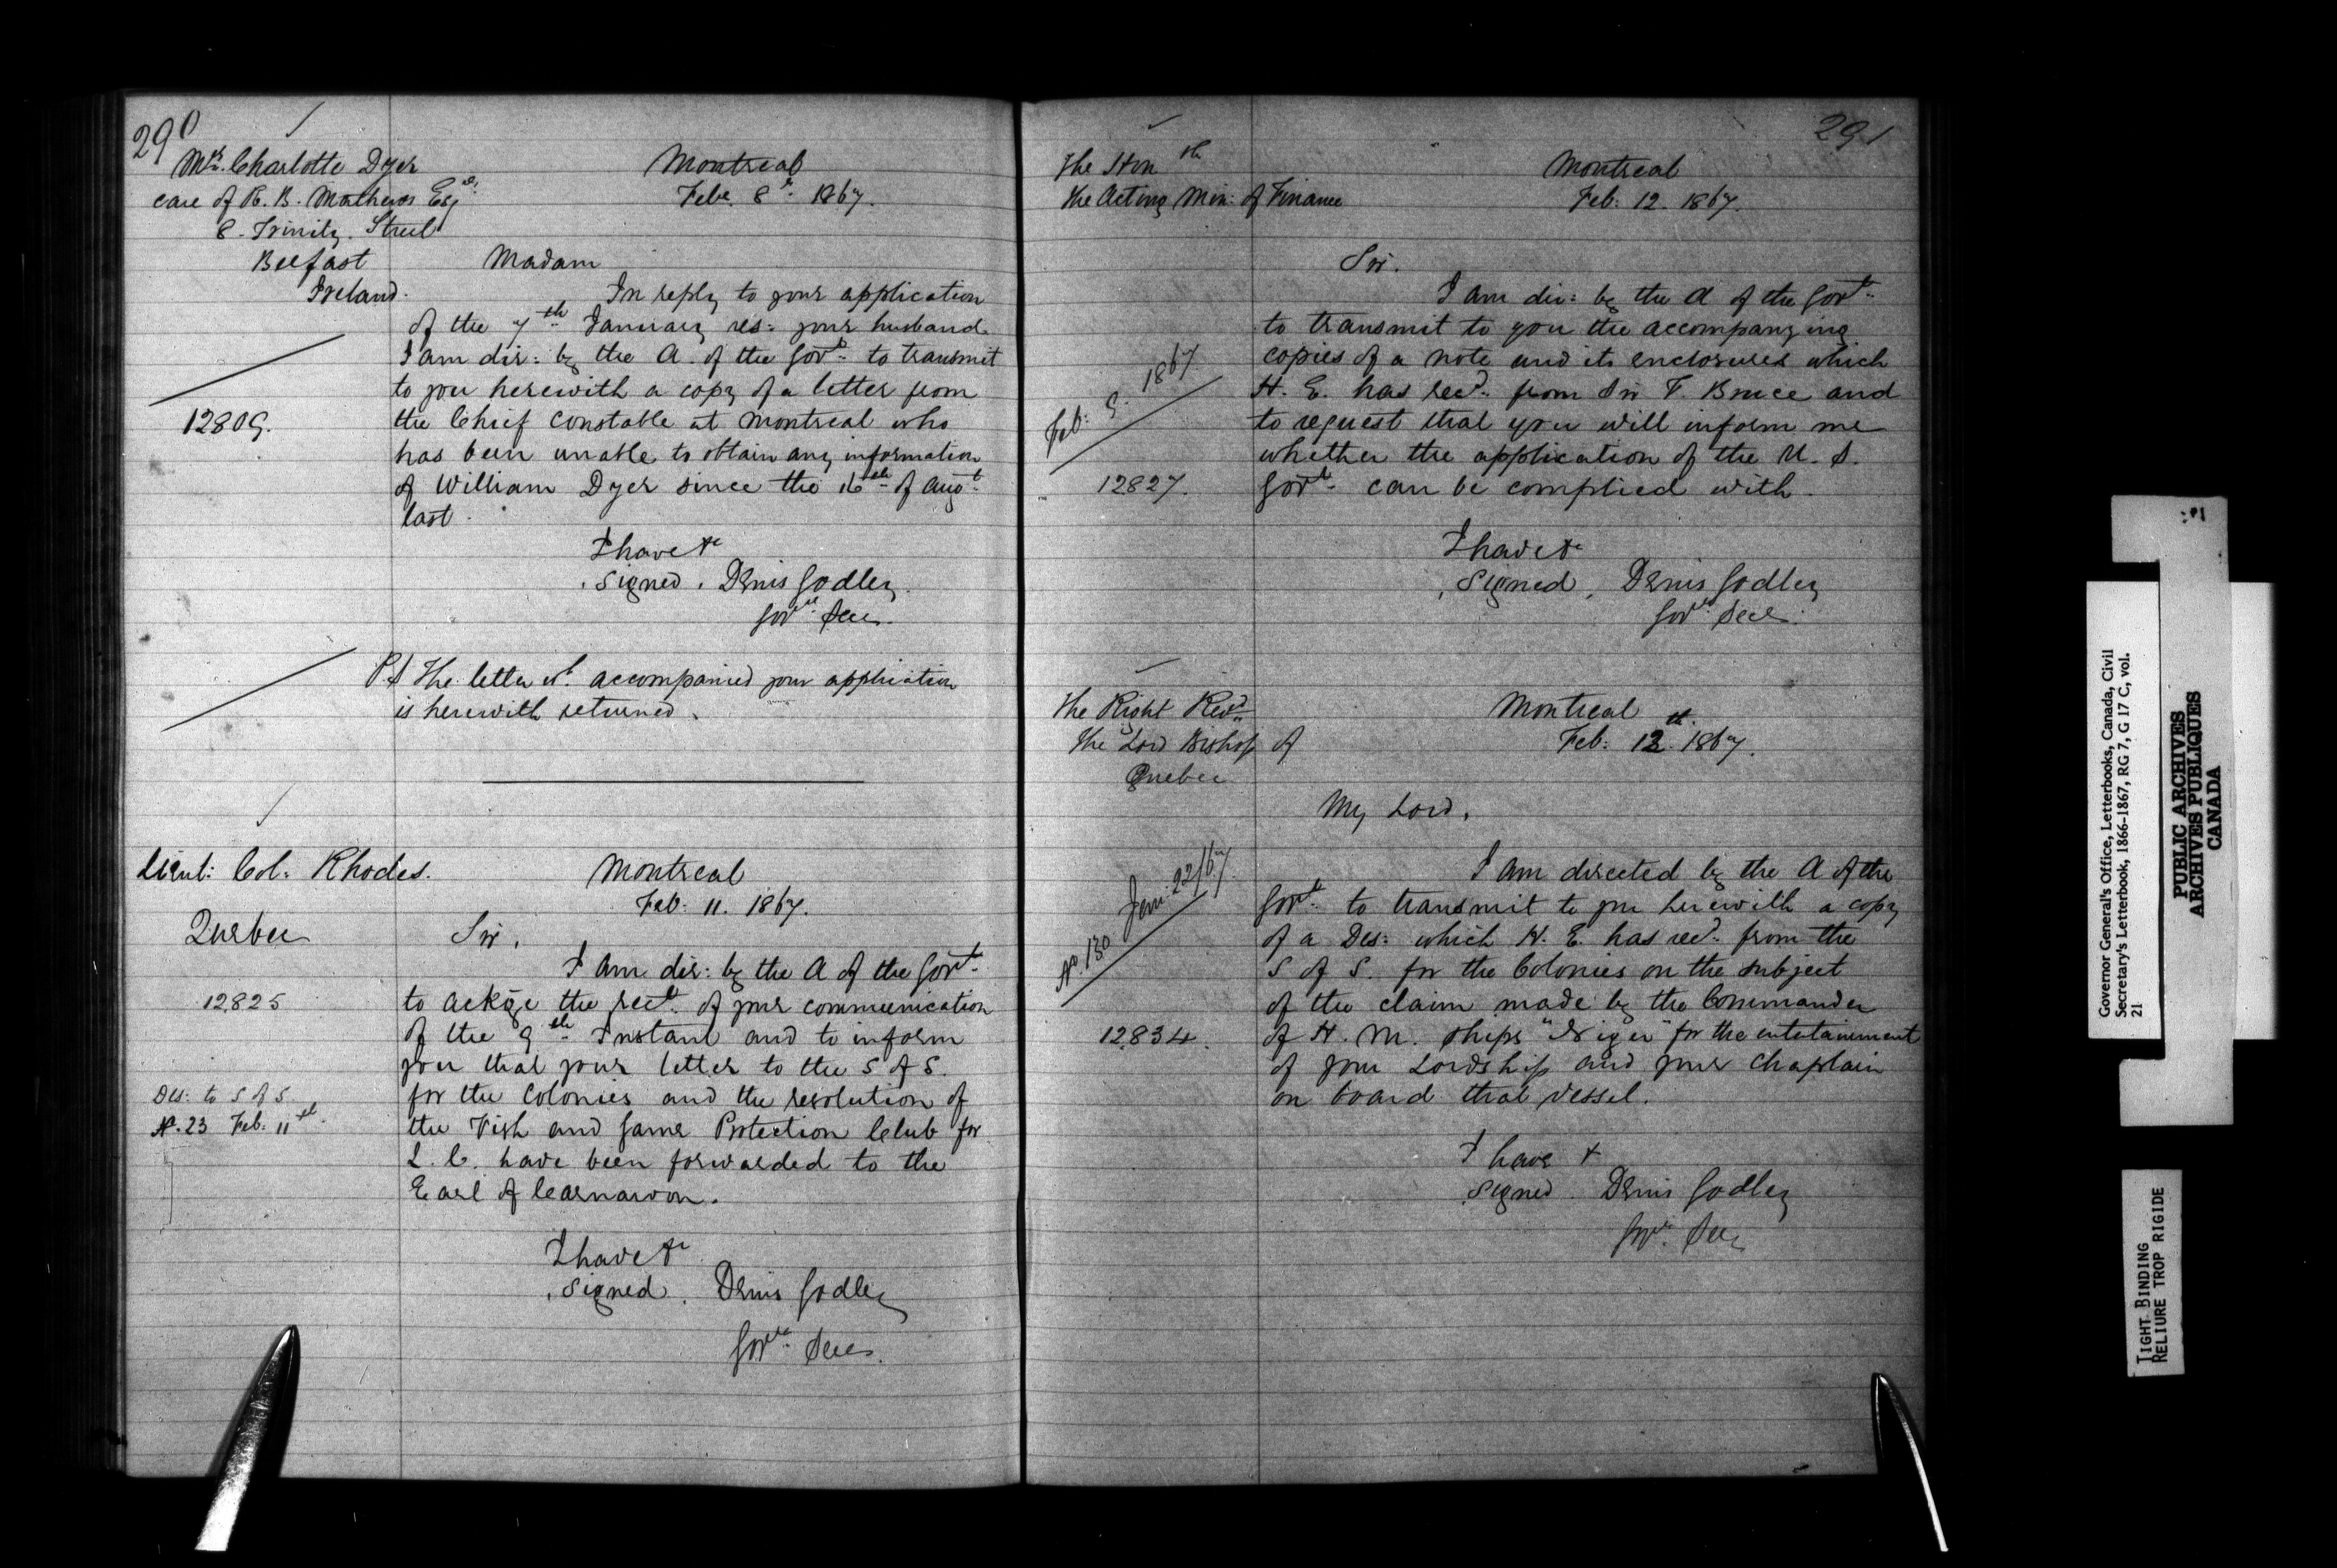 290
Mrs. Charlotte Dyer
care of R. B. Mathews Esqr.
8. Trinity. Street
Belfast
Ireland.
Montreal
Feb. 8th. 1867.
Madam
In reply to your application
of the 7th January res: your husband
I am dir: by the A. of the Govt. to transmit
to you herewith a copy of a letter from
the Chief Constable at Montreal who
has been unable to obtain any information
of William Dyer since the 16th of Augt.
last.
12809.
I have &c
signed. Denis Godley
Govrs. Secy.
P.S The letter wh. accompanied your application
is herewith returned.
Lieut: Col: Rhodes.
Quebec
Montreal
Feb: 11. 1867.
Sir,
I am dir: by the A of the Govt.
to ackge the rect. of your communication
of the 9th Instant and to inform
you that your letter to the S of S.
for the Colonies and the resolution of
the Fish and Game Protection Club for
L. C. have been forwarded to the
Earl of Carnarvon.
12825
Des: to S of S.
No. 23 Feb: 11th.
I have &c
signed. Denis Godley
Govrs. Secy.
291
The Honble
The Acting Min: of Finance
Montreal
Feb: 12. 1867.
Sir.
I am dir: by the A of the Govt.
to transmit to you the accompanying
copies of a note and its enclosures which
H. E. has recd. from Sir F. Bruce and
to request that you will inform me
whether the application of the U. S.
Govt. can be complied with.
Feb: 9. 1867
12827.
I have &c
signed. Denis Godley
Govrs. Secy.
The Right Revd.
The Lord Bishop of
Quebec
Montreal
Feb: 13th. 1867.
My Lord,
I am directed by the A of the
Govt. to transmit to you herewith a copy
of a Des: which H. E. has recd. from the
S of S. for the Colonies on the subject
of the claim made by the Commander
of H. M. Ships "Niger" for the entertainment
of your Lordship and your Chaplain
on board that vessel.
No. 130 Jan: 22/67.
12834.
I have &
signed. Denis Godley
Govr. Secy
Governor General's Office, Letterbooks, Canada, Civil
Secretary's Letterbook, 1866-1867, RG 7, G 17 C, vol.
21
PUBLIC ARCHIVES
ARCHIVES PUBLIQUES
CANADA
TIGHT BINDING
RELIURE TROP RIGIDE